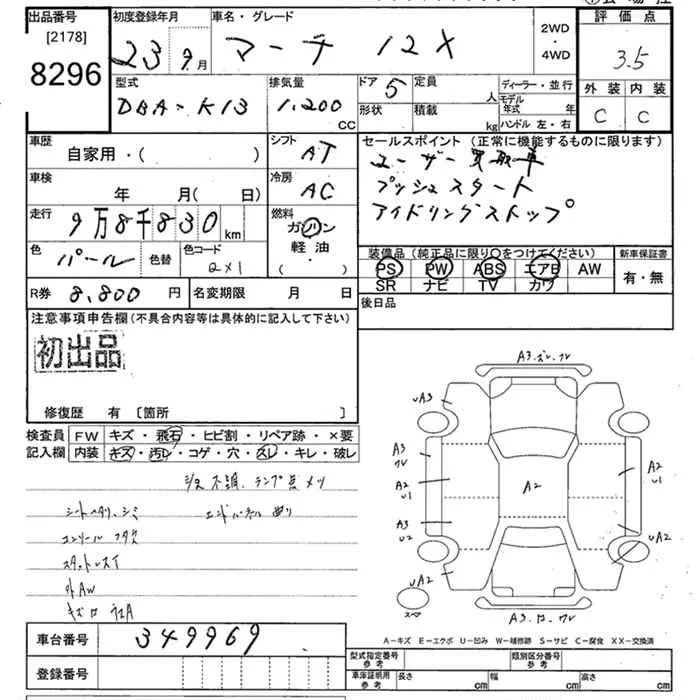 出品番号
[2178]
8296
初度登録年月
23 9月
車名・グレード
マーチ 12X
2WD
・
4WD
評価点
3.5
外装 内装
C C
型式
DBA-K13
排気量
1,200
CC
ドア 5
形状
定員
人
積載
kg
ディーラー・並行
モデル年式 年
ハンドル 左・右
車歴
自家用・( )
シフト
AT
車検
年 月( 日)
冷房
AC
走行
9万8千830 km
燃料
ガソリン
軽・油
( )
色
パール
色替
色コード
2X1
R券 8,800 円
名変期限 月 日
セールスポイント (正常に機能するものに限ります)
ユーザー買取車
プッシュスタート
アイドリングストップ
装備品(純正品に限り○をつけてください)
PS PW ABS エアB AW
SR ナビ TV カワ
新車保証書
有・無
後日品
注意事項申告欄(不具合内容等は具体的に記入して下さい)
初出品
修復歴 有 〔箇所 〕
検査員記入欄
FW キズ・飛石・ヒビ割・リペア跡・×要
内装 キズ・汚レ・コゲ・穴・スレ・キレ・破レ
シートスタリ、シミ
エンドパネル曲リ
スタットレスイ
外AW
A3
UA3
A3
A2
U1
A3
U2
UA2
A2
A2
U1
UA2
UA2
スペア
A-キズ E-エクボ U-凹み W-補修跡 S-サビ C-腐食 XX-交換済
車台番号 349969
登録番号
型式指定番号
参考
類別区分番号
参考
車庫証明用
参考
長さ cm
幅 cm
高さ cm